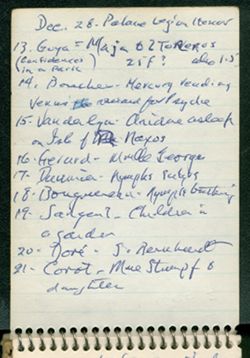 Dec. 28. Palace Legion Honor
13. Goya = Maja & 2 Toreros
(Confidences in a Park) 2 i f ? also 15
14. Boucher - Mercury
Venus award for Psyche
15. Vanderlyn. Ariadne asleep
on Isl of Naxos
16. Gerard - Mlle Georges
17. Daumier - Nymphs Satyrs
18. Bouguereau - Nymphs bathing
19. Sargent - Children in
a garden
20 - Doré - S. Bernhardt
21 - Corot - Mme Stumpf &
daughter